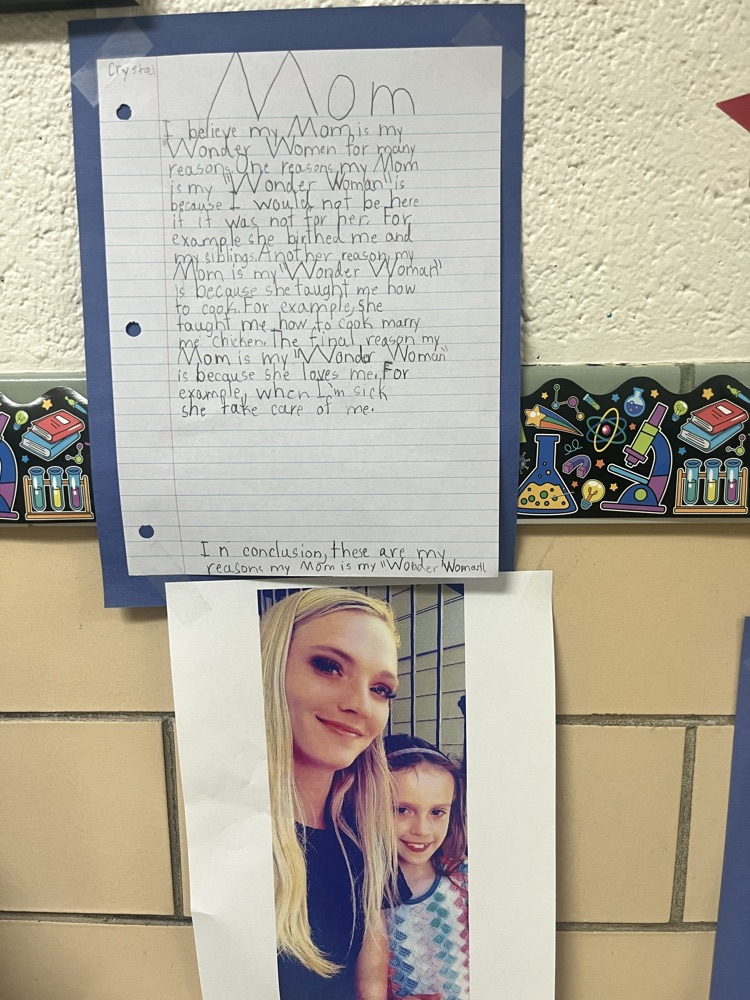 Crystal
Mom
I believe my Mom is my
"Wonder Women for many
reasons. One reasons, my Mom
is my "Wonder Woman" is
because I would not be here
if it was not for her. For
example she birthed me and
my siblings. Another reason my
Mom is my "Wonder Woman"
is because she taught me how
to cook. For example, she
taught me how to cook marry
me chicken. The final reason my
Mom is my "Wonder Woman"
is because she loves me. For
example, when I'm sick
she take care of me.
In conclusion, these are my
reasons my Mom is my "Wonder Woman"